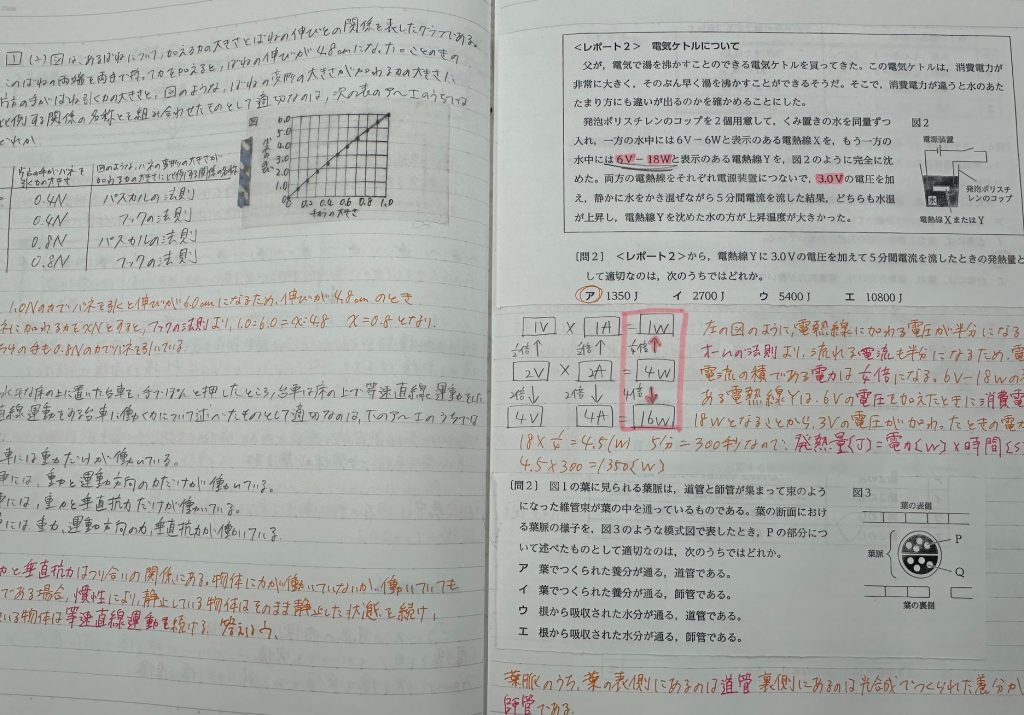 1 (2) 図は、あるばねについて、加える力の大きさとばねの伸びとの関係を表したグラフである。
このばねの両端を両手で持って力を加えると、ばねの伸びが4.8cmになった。このときの
片方の手がばねを引く力の大きさと、図のような、ばねの変形の大きさが加わる力の大きさに
比例する関係の名称とを組み合わせたものとして適切なのは、次の表のア〜エのうちでは
どれか
図2
6.0
5.0
4.0
3.0
2.0
1.0
0
0 0.2 0.4 0.6 0.8 1.0
力の大きさ
片方の手がバネを
引く力の大きさ
図のような、バネの変形の大きさが
加わる力の大きさに比例する関係の名称
0.4N パスカルの法則
0.4N フックの法則
0.8N パスカルの法則
0.8N フックの法則
1.0Nの力でバネを引くと伸びが6.0cmになるため、伸びが4.8cmのとき
に加わる力をxNとすると、フックの法則より、1.0:6.0=x:4.8 x=0.8となり、
の手も0.8Nの力でバネを引いている
水平な床の上に置いた台車を、手でポンと押したところ、台車は床の上で等速直線運動をした
直線運動をする台車に働く力について述べたものとして適切なのは、下のア〜エのうちでは
車には重力だけが働いている。
車には、重力と運動方向の力だけが働いている。
車には、重力と垂直抗力だけが働いている。
車には、重力、運動方向の力、垂直抗力が働いている。
力と垂直抗力はつり合いの関係にある。物体に力が働いていないか、働いていても
である場合、慣性により、静止している物体はそのまま静止した状態を続け、
いる物体は等速直線運動を続ける。答えはウ、
<レポート2> 電気ケトルについて
父が、電気で湯を沸かすことのできる電気ケトルを買ってきた。この電気ケトルは、消費電力が
非常に大きく、そのぶん早く湯を沸かすことができるそうだ。そこで、消費電力が違うと水のあた
たまり方にも違いが出るのかを確かめることにした。
発泡ポリスチレンのコップを2個用意して、くみ置きの水を同量ずつ
入れ、一方の水中には6V－6Wと表示のある電熱線Xを、もう一方の
水中には6V－18Wと表示のある電熱線Yを、図2のように完全に沈
めた。両方の電熱線をそれぞれ電源装置につないで、3.0Vの電圧を加
え、静かに水をかき混ぜながら5分間電流を流した結果、どちらも水温
が上昇し、電熱線Yを沈めた水の方が上昇温度が大きかった。
図2
電源装置
発泡ポリスチ
レンのコップ
水
電熱線XまたはY
〔問2〕 <レポート2>から、電熱線Yに3.0Vの電圧を加えて5分間電流を流したときの発熱量と
して適切なのは、次のうちではどれか。
ア 1350J イ 2700J ウ 5400J エ 10800J
1V × 1A = 1W
1/2倍↑ 1/2倍↑ 1/4倍↑
2V × 2A = 4W
2倍↓ 2倍↓ 4倍↓
4V 4A = 16W
左の図のように、電熱線に加わる電圧が半分になる
オームの法則より、流れる電流も半分になるため、電
電流の積である電力は1/4倍になる。6V-18Wの
ある電熱線Yは、6Vの電圧を加えたときに消費電
18Wとなることから、3Vの電圧が加わったときの電力
18×1/4=4.5(W) 5分=300秒なので、発熱量(J)=電力(W)×時間(s)
4.5×300=1350(W)
〔問2〕 図1の葉に見られる葉脈は、道管と師管が集まって束のよう
になった維管束が葉の中を通っているものである。葉の断面におけ
る葉脈の様子を、図3のような模式図で表したとき、Pの部分につい
て述べたものとして適切なのは、次のうちではどれか。
ア 葉でつくられた養分が通る、道管である。
イ 葉でつくられた養分が通る、師管である。
ウ 根から吸収された水分が通る、道管である。
エ 根から吸収された水分が通る、師管である。
図3
葉の表側
P
葉脈
Q
葉の裏側
葉脈のうち、葉の表側にあるのは道管 裏側にあるのは光合成でつくられた養分が
師管である。